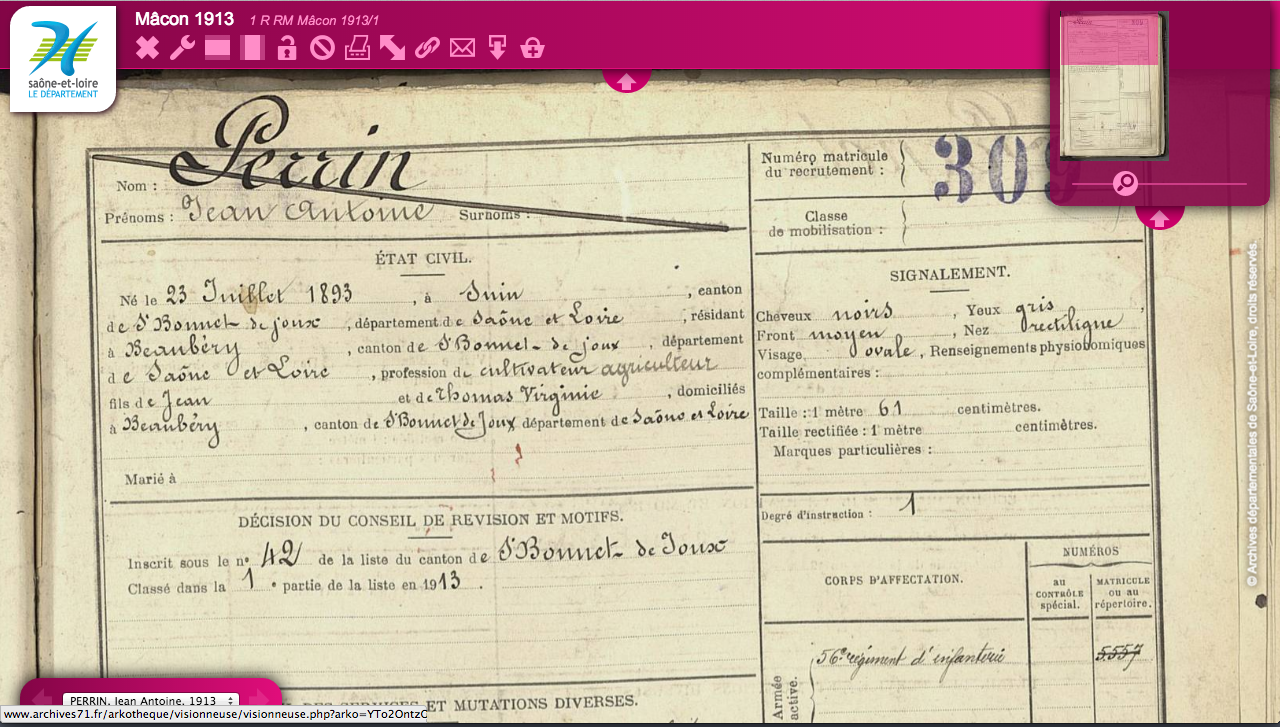 Mâcon 1913 1 R RM Mâcon 1913/1
saône-et-loire
LE DÉPARTEMENT
Perrin
Nom :
Prénoms : Jean Antoine Surnoms :
Numéro matricule
du recrutement : 309
Classe
de mobilisation :
ÉTAT CIVIL.
Né le 23 Juillet 1893, à Suin, canton
de St Bonnet de joux, département de Saône et Loire, résidant
à Beaubéry, canton de St Bonnet de joux, département
de Saône et Loire, profession de cultivateur agriculteur
fils de Jean et de Thomas Virginie, domiciliés
à Beaubéry, canton de St Bonnet de Joux département de Saône et Loire
Marié à
SIGNALEMENT.
Cheveux noirs, Yeux gris,
Front moyen, Nez rectiligne
Visage ovale, Renseignements physionomiques
complémentaires :
Taille : 1 mètre 61 centimètres.
Taille rectifiée : 1 mètre centimètres.
Marques particulières :
Degré d'instruction : 1
DÉCISION DU CONSEIL DE REVISION ET MOTIFS.
Inscrit sous le n° 42 de la liste du canton de St Bonnet de Joux
Classé dans la 1e partie de la liste en 1913.
CORPS D'AFFECTATION.
NUMÉROS
au
CONTRÔLE
spécial.
MATRICULE
ou au
répertoire.
Armée
active.
56e régiment d'infanterie 5557
ET MUTATIONS DIVERSES.
© Archives départementales de Saône-et-Loire, droits réservés.
PERRIN, Jean Antoine, 1913
www.archives71.fr/arkotheque/visionneuse/visionneuse.php?arko=YTo2OntzO